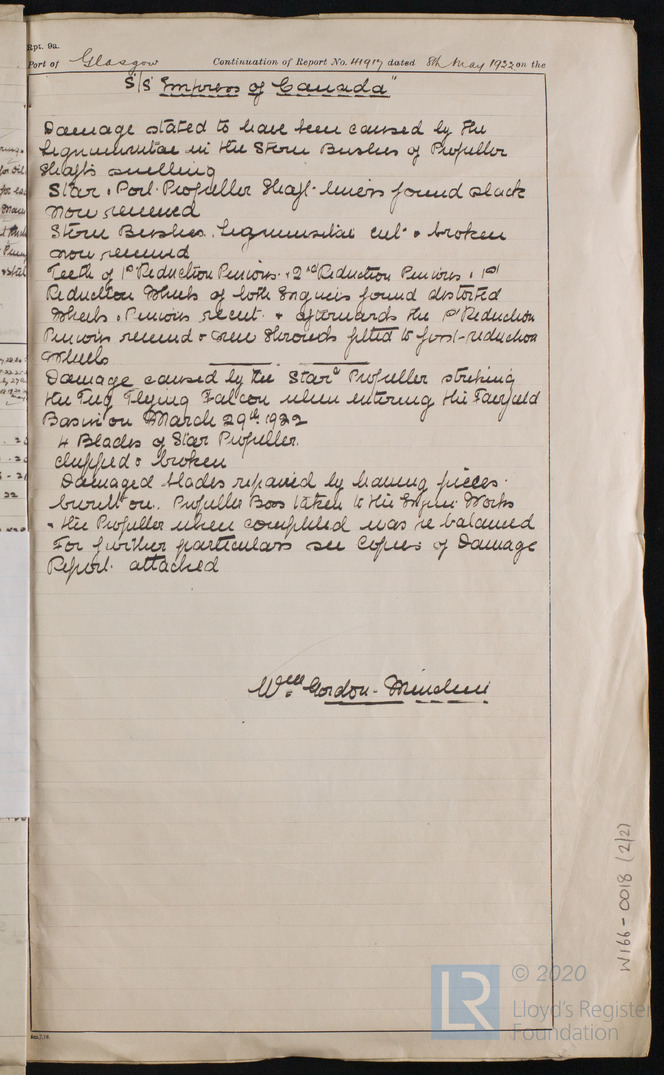 Rpt. 9a.
Port of Glasgow Continuation of Report No. 41917 dated 8th May 1922 on the
S/S "Empress of Canada"
Damage stated to have been caused by the
Lignumvitae in the Stern Bushes of Propeller
Shafts swelling
Star & Port Propeller Shaft liners found slack
now renewed
Stern Bushes. Lignumvitae cut & broken
now renewed
Teeth of 1st Reduction Pinions & 2nd Reduction Pinions & 1st
Reduction Wheels of both Engines found distorted
Wheels & Pinions recut & afterwards the 1st Reduction
Pinions renewed & new Shrouds fitted to first-reduction
Wheels
Damage caused by the Stard Propeller striking
the Tug Flying Falcon when entering the Fairfield
Basin on March 29th 1922
4 Blades of Star Propeller
chipped & broken
Damaged blades repaired by having pieces
burnt on. Propeller Boss taken to the Engine Works
& the Propeller when completed was re balanced
For further particulars see Copies of Damage
Report attached
Wm Gordon-
W166-0018 (2/2)
LR
© 2020
Lloyd's Register
Foundation